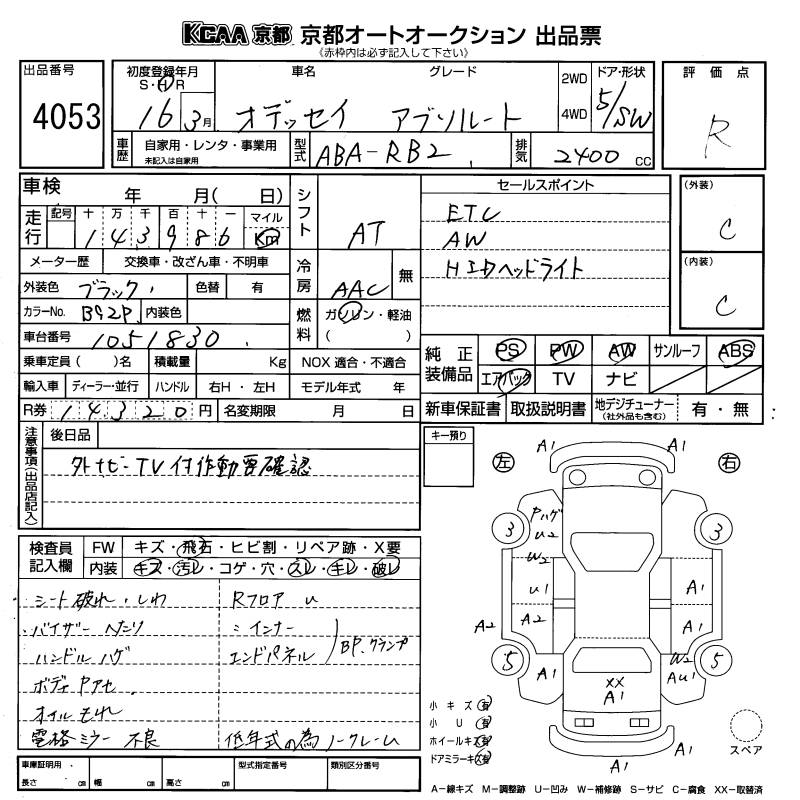 KCAA 京都 京都オートオークション 出品票
《赤枠内は必ず記入して下さい》
出品番号
4053
初度登録年月
S・H・R
16 3月
車名 グレード
オデッセイ アブソルート
2WD
4WD
ドア・形状
5/SW
評価点
R
車歴
自家用・レンタ・事業用
未記入は自家用
型式
ABA-RB2
排気
2400 cc
車検 年 月( 日)
走行
記号 十 万 千 百 十 一 マイル
1 4 3 9 8 6 Km
シフト
AT
セールスポイント
ETC
AW
HIDヘッドライト
(外装)
C
(内装)
C
メーター歴 交換車・改ざん車・不明車
外装色 ブラック 色替 有
カラーNo. B92P 内装色
車台番号 1051830
冷房 AAC 無
燃料 ガソリン・軽油
( )
純正装備品
PS PW AW サンルーフ ABS
エアバック TV ナビ
乗車定員 ( )名 積載量 Kg NOX 適合・不適合
輸入車 ディーラー・並行 ハンドル 右H・左H モデル年式 年
R券 14320円 名変期限 月 日
新車保証書 取扱説明書 地デジチューナー (社外品も含む) 有・無
注意事項(出品店記入)
後日品
外ナビTV付作動要確認
キー預り
検査員記入欄
FW キズ・飛石・ヒビ割・リペア跡・X要
内装 キズ・汚レ・コゲ・穴・スレ・キレ・破レ
シート破れ・しわ
バイザーヘたり
ハンドルハゲ
ボディPアセ
オイルもれ
電格ミラー不良
Rフロア u
〃インナー
エンドパネル
BP.クランプ
低年式の為ノークレーム
左 右
A1 A1
3 3
Pハゲ
U2
W2
U1
A1
A2 A2
A1
5 5
W2
A1
XX
A1
AU1
A1 A1
小キズ 有
小U 有
ホイールキズ 有
ドアミラーキズ 有
スペア
車庫証明用
長さ cm 幅 cm 高さ cm
型式指定番号
類別区分番号
A-線キズ M-調整跡 U-凹み W-補修跡 S-サビ C-腐食 XX-取替済